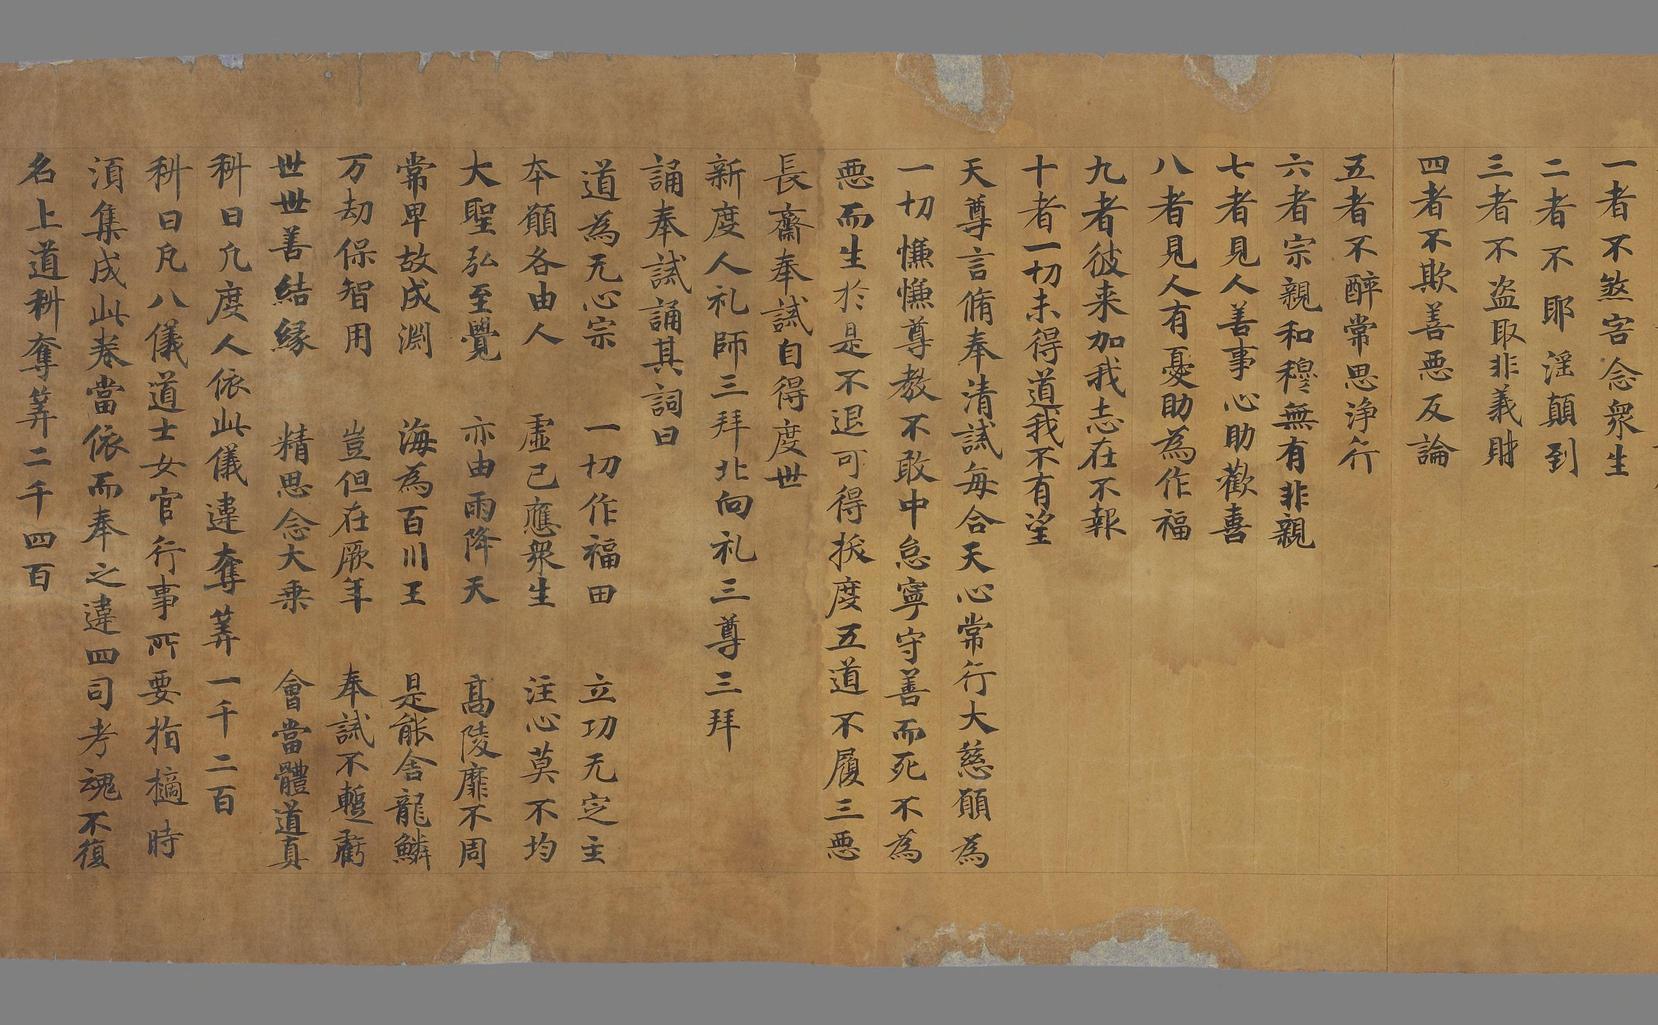 一者不煞害念衆生
二者不耶淫顛到
三者不盗取非義財
四者不欺善惡反論
五者不醉常思浄行
六者宗親和穆無有非親
七者見人善事心助歡喜
八者見人有憂助為作福
九者彼来加我志在不報
十者一切未得道我不有望
天尊言脩奉清誡每合天心常行大慈願為
一切慊慊尊教不敢中怠寧守善而死不為
惡而生於是不退可得拔度五道不履三惡
長齋奉誡自得度世
新度人礼師三拜北向礼三尊三拜
誦奉誡誦其詞曰
道為无心宗　一切作福田　立功无定主
本願各由人　虛己應衆生　注心莫不均
大聖弘至覺　亦由雨降天　髙陵靡不周
常卑故成淵　海為百川王　是能舍龍鱗
万劫保智用　豈但在厥年　奉誡不暫虧
世世善結緣　精思念大乗　會當體道真
科曰凢度人依此儀違奪筭一千二百
科曰凢八儀道士女官行事所要指擿時
湏集成此卷當依而奉之違四司考魂不復
名上道科奪筭二千四百